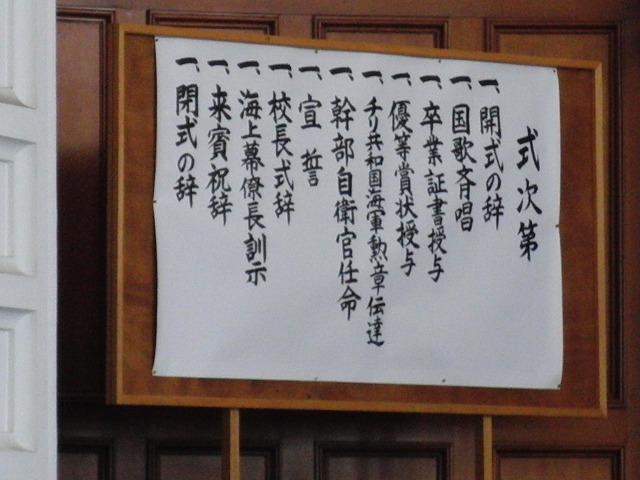 式次第
一、開式の辞
一、国歌斉唱
一、卒業証書授与
一、優等賞状授与
一、チリ共和国海軍勲章伝達
一、幹部自衛官任命
一、宣誓
一、校長式辞
一、海上幕僚長訓示
一、来賓祝辞
一、閉式の辞